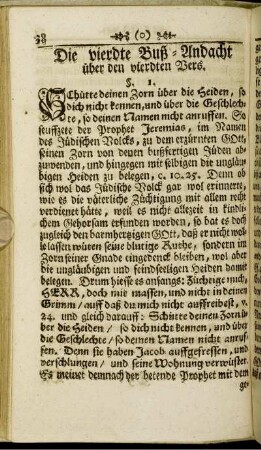 38 (o)
Die vierdte Buß-Andacht
über den vierdten Vers.
§. 1.
SChütte deinen Zorn über die Heiden, so
dich nicht kennen, und über die Geschlech-
te, so deinen Namen nicht anruffen. So
seuffzete der Prophet Jeremias, im Namen
des Jüdischen Volcks, zu dem erzürnten Gott,
seinen Zorn von denen bußfertigen Jüden ab-
zuwenden, und hingegen mit selbigen die ungläu-
bigen Heiden zu belegen, c. 10. 25. Denn ob
sich wol das Jüdische Volck gar wol erinnerte,
wie es die väterliche Züchtigung mit allem recht
verdienet hätte, weil es nicht allezeit in kindli-
chem Gehorsam erfunden worden, so bat es doch
zugleich den barmhertzigen Gott, daß er nicht wol-
le lassen wüten seine blutige Ruthe, sondern im
Zorn seiner Gnade eingedenck bleiben, wol aber
die ungläubigen und feindseeligen Heiden damit
belegen. Drum hiesse es anfangs: Züchtige mich,
HERR, doch mit massen, und nicht in deinem
Grimm / auf daß du mich nicht auffreibest, v.
24. und gleich darauff: Schütte deinen Zorn über
die Heiden / so dich nicht kennen, und über
die Geschlechte / so deinen Namen nicht anruf-
fen. Denn sie haben Jacob auffgefressen, und
verschlungen / und seine Wohnung verwüstet.
Es meinet demnach der betende Prophet mit dem
ge-